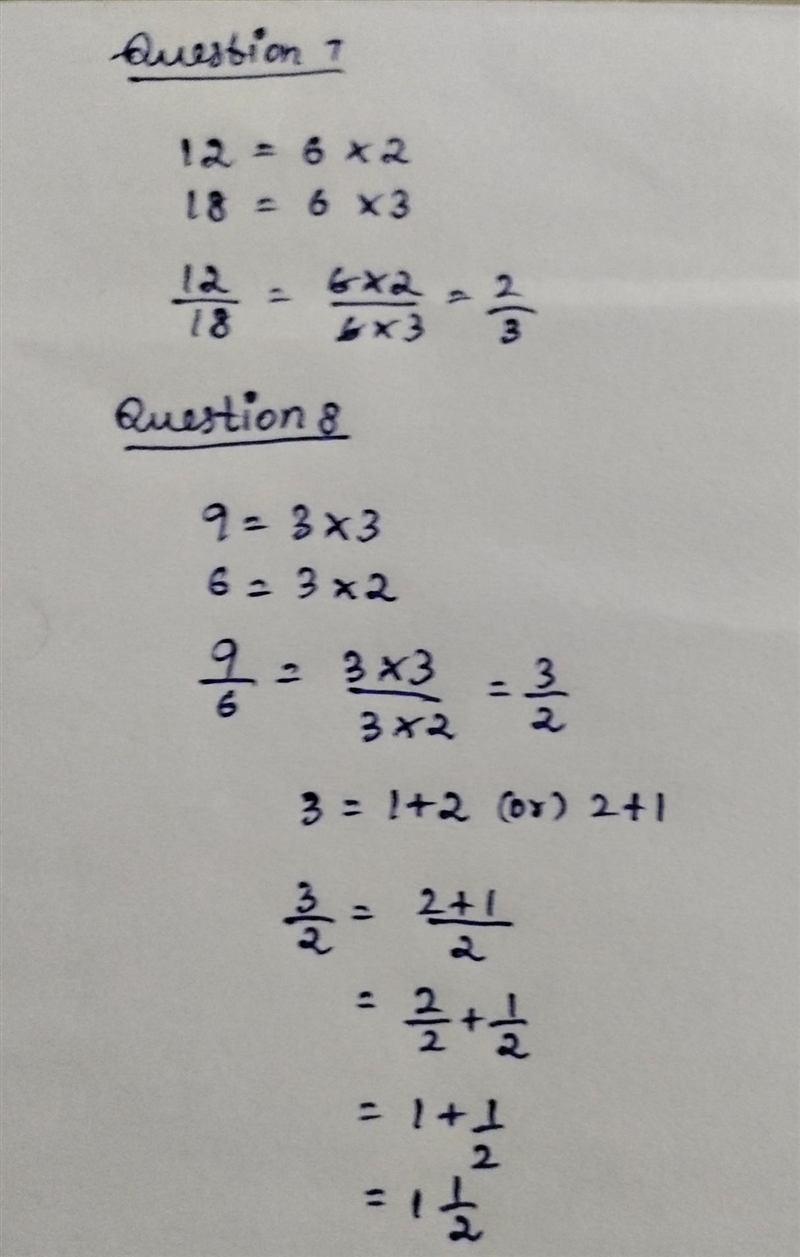 Question 7
12 = 6 × 2
18 = 6 × 3
12/18 = 6×2/6×3 = 2/3
Question 8
9 = 3 × 3
6 = 3 × 2
9/6 = 3×3/3×2 = 3/2
3 = 1+2 (or) 2+1
3/2 = 2+1/2
= 2/2 + 1/2
= 1 + 1/2
= 1 1/2